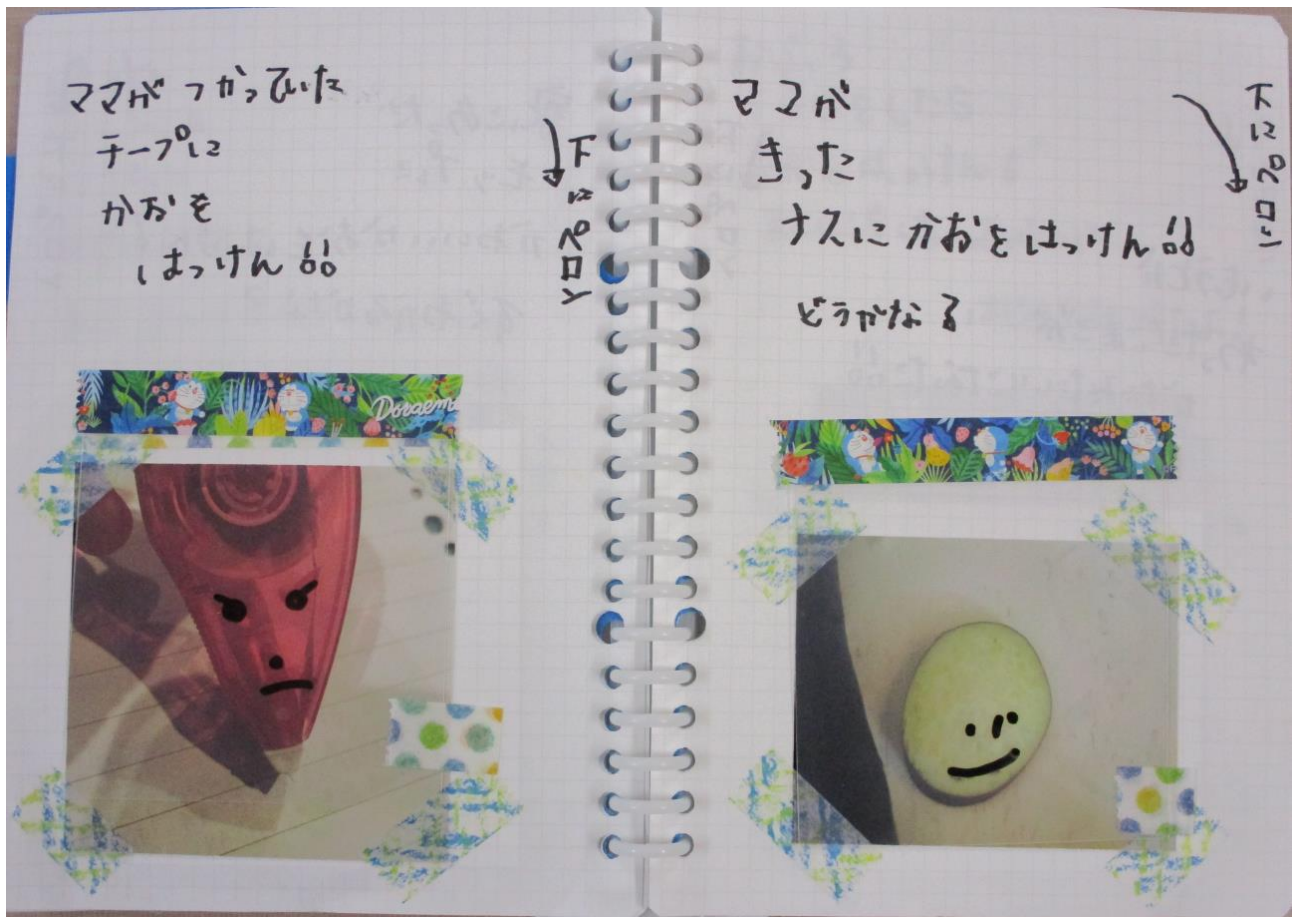 ママがつかっていた
テープに
かおを
はっけん!!
下にペロン
Doraem
ママが
きった
ナスにかおをはっけん!!
どうかなる
下にペロン